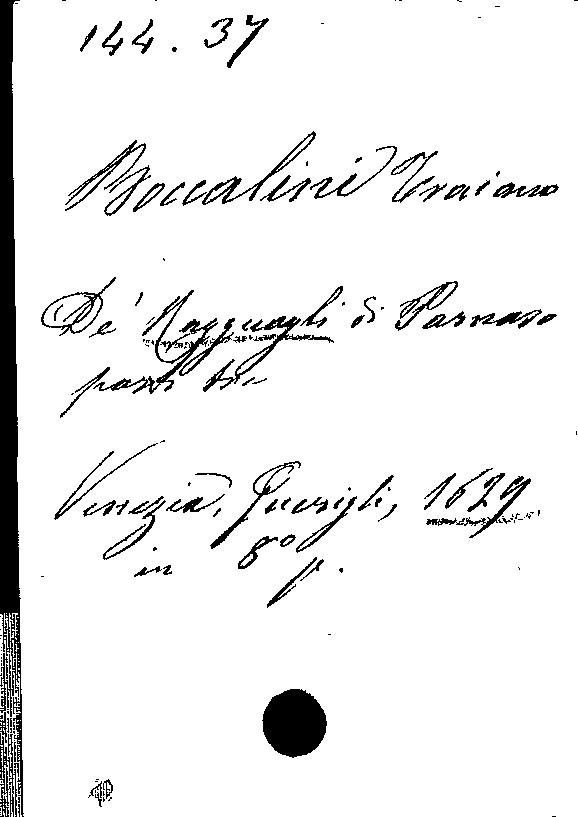 144. 37
Boccalini Traiano
De' Ragguagli di Parnaso
parti tre
Venezia, Guerigli, 1629
in 8° p.